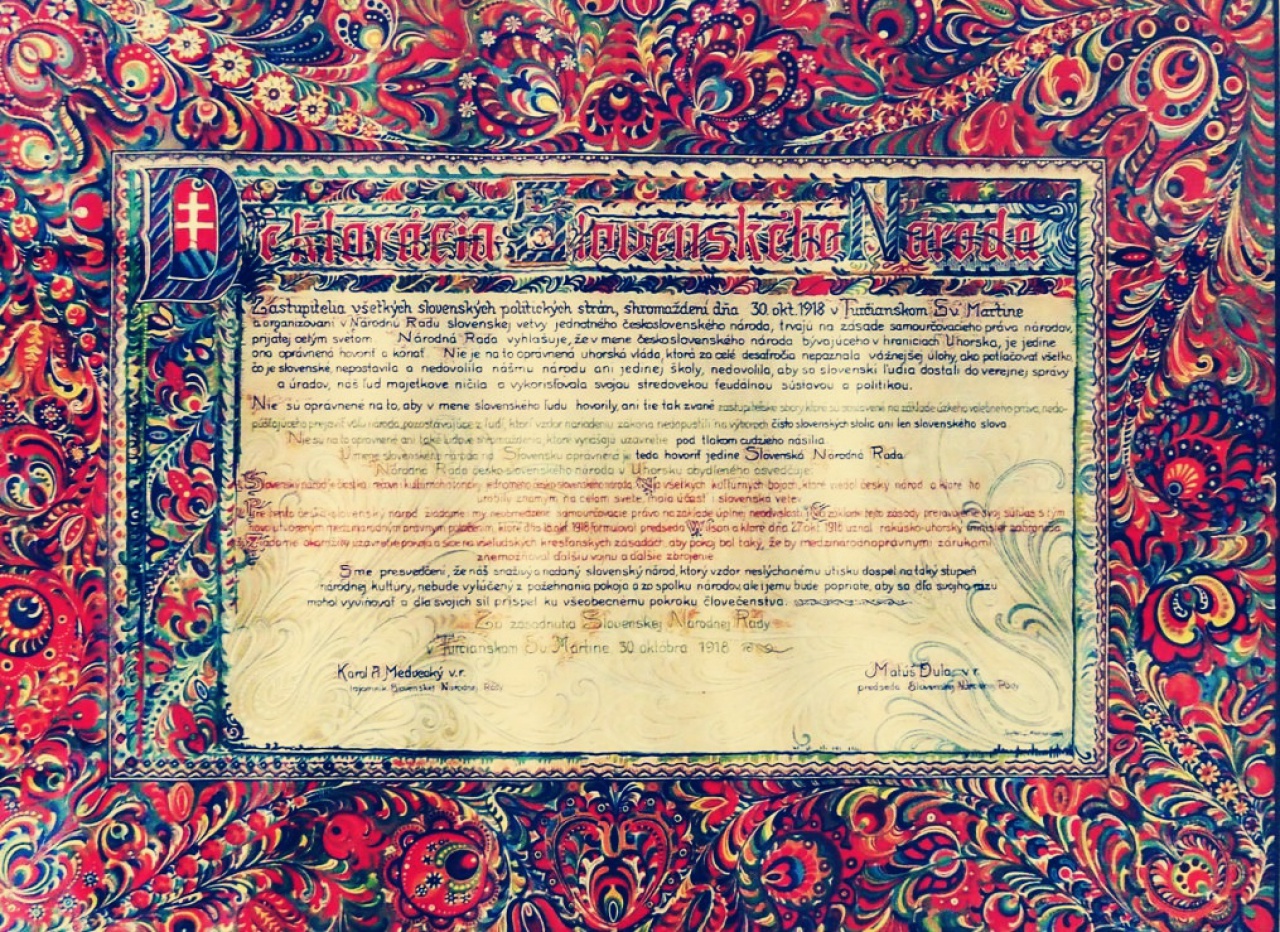 Deklarácia Slovenského Národa
Zástupitelia všetkých slovenských politických strán, shromaždení dňa 30. okt. 1918 v Turčianskom Sv. Martine
a organizovaní v Národnú Radu slovenskej vetvy jednotného československého národa, trvajú na zásade samourčovacieho práva národov,
prijatej celým svetom Národná Rada vyhlašuje, že v mene československého národa bývajúceho v hraniciach Uhorska, je jedine
ona oprávnená hovoriť a konať. Nie je na to oprávnená uhorská vláda, ktorá za celé desaťročia nepoznala vážnejšej úlohy, ako potlačovať všetko,
čo je slovenské, nepostavila a nedovolila nášmu národu ani jedinej školy, nedovolila, aby sa slovenskí ľudia dostali do verejnej správy
a úradov, náš ľud majetkove ničila a vykorisťovala svojou stredovekou feudálnou sústavou a politikou.
Nie sú oprávnené na to, aby v mene slovenského ľudu hovorily, ani tie tak zvané zastupiteľské sbory, ktoré sú sostavené na základe úzkeho volebného práva, nedo-
púšťajúceho prejaviť vôľu národa, pozostávajúce z ľudí, ktorí vzdor nariadeniu zákona nedopustili na výboroch čisto slovenských stolíc ani len slovenského slova.
Nie sú na to oprávnené ani také ľudové shromaždenia, ktoré vynášajú uzavretie pod tlakom cudzieho násilia.
V mene slovenského národa na Slovensku oprávnená je teda hovoriť jedine Slovenská Národná Rada.
Národná Rada česko-slovenského národa v Uhorsku obydleného osvedčuje:
Slovenský národ je čiastka i rečovi i kultúrno-historicky jednotného česko-slovenského národa. Na všetkých kultúrnych bojoch, ktoré viedol český národ a ktoré ho
urobily známym na celom svete, mala účasť i slovenská vetev.
Pre tento česko-slovenský národ žiadame i my neobmedzené samourčovacie právo na základe úplnej neodvislosti. Na základe tejto zásady prejavujeme svoj súhlas s tým
novo utvoreným medzinárodným právnym položením, ktoré dňa 18. okt. 1918 formuloval predseda Wilson a ktoré dňa 27. okt. 1918 uznal rakúsko-uhorský minister zahraničia.
Žiadame okamžité uzavretie pokoja a síce na všeľudských kresťanských zásadách, aby pokoj bol taký, že by medzinárodnoprávnymi zárukami
znemožňoval ďalšiu vojnu a ďalšie zbrojenie.
Sme presvedčení, že náš snaživý a nadaný slovenský národ, ktorý vzdor neslýchanému útisku dospel na taký stupeň
národnej kultúry, nebude vylúčený z požehnania pokoja a zo spolku národov, ale i jemu bude popriate, aby sa dľa svojho rázu
mohol vyvinovať a dľa svojich síl prispel ku všeobecnému pokroku človečenstva.
Zo zasadnutia Slovenskej Národnej Rady
v Turčianskom Sv. Martine, 30 októbra 1918
Karol A. Medvecký v.r. Matúš Dula v.r.
tajomník Slovenskej Národnej Rady predseda Slovenskej Národnej Rady